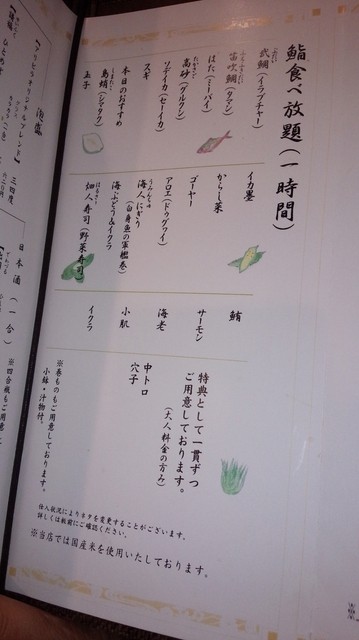 鮨食べ放題(一時間)
武鯛(イラブチャー)
笛吹鯛(タマン)
はた(ミーバイ)
高砂(グルクン)
ソデイカ(セーイカ)
スギ
本日のおすすめ
島蛸(シマタク)
玉子
イカ墨
からし菜
ゴーヤー
アロエ(ドゥグァイ)
海人にぎり
(白身魚の軍艦巻)
海ぶどう&イクラ
畑人寿司(野菜寿司)
鮪
サーモン
海老
小肌
イクラ
特典として一貫ずつ
ご用意しております。
(大人料金の方み)
中トロ
穴子
※巻ものもご用意しております。
小鉢・汁物付。
仕入状況によりネタを変更することがございます。
詳しくは板前にご確認ください。
※当店では国産米を使用いたしております。
泡盛
三四度
日本酒(一合)